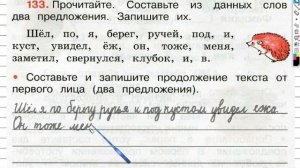 133. Прочитайте. Составьте из данных слов
два предложения. Запишите их.
Шёл, по, я, берег, ручей, под, и,
куст, увидел, ёж, он, тоже, меня,
заметил, свернулся, клубок, и, в.
• Составьте и запишите продолжение текста от
первого лица (два предложения).
Шёл я по берегу ручья и под кустом увидел ежа.
Он тоже мен